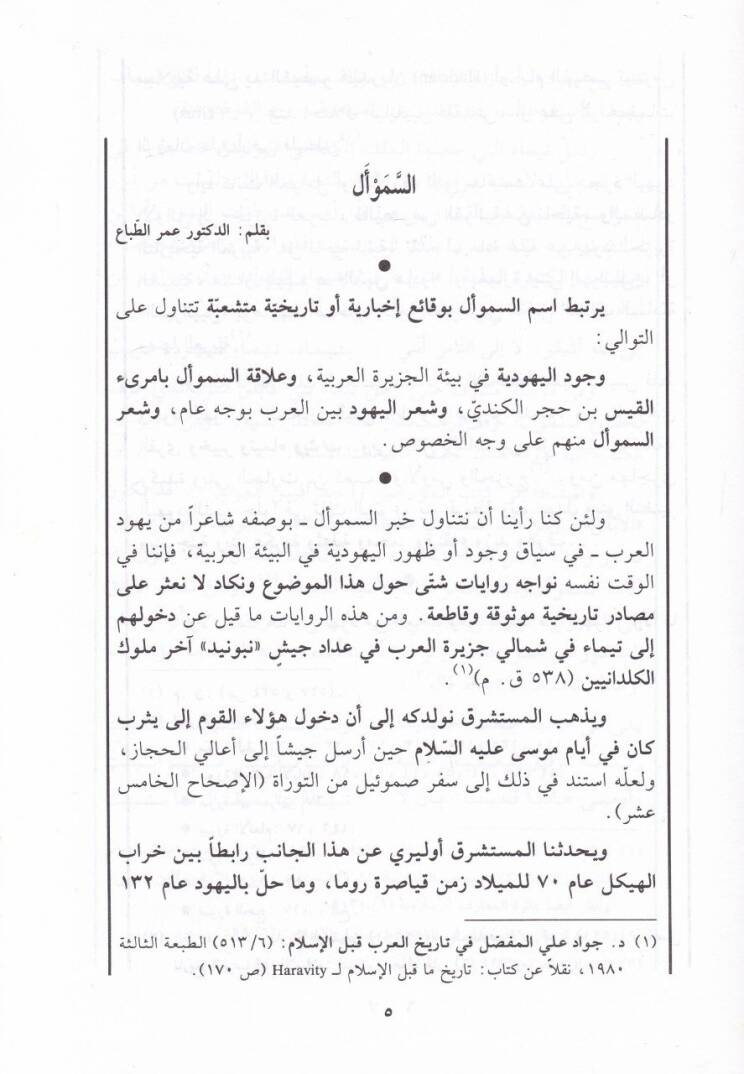 السَّمَوْأَل
بقلم: الدكتور عمر الطّباع
●
يرتبط اسم السموأل بوقائع إخبارية أو تاريخيّة متشعبّة تتناول على
التوالي:
وجود اليهودية في بيئة الجزيرة العربية، وعلاقة السموأل بامرىء
القيس بن حجر الكنديّ، وشعر اليهود بين العرب بوجه عام، وشعر
السموأل منهم على وجه الخصوص.
●
ولئن كنا رأينا أن نتناول خبر السموأل ـ بوصفه شاعراً من يهود
العرب ـ في سياق وجود أو ظهور اليهودية في البيئة العربية، فإننا في
الوقت نفسه نواجه روايات شتّى حول هذا الموضوع ونكاد لا نعثر على
مصادر تاريخية موثوقة وقاطعة. ومن هذه الروايات ما قيل عن دخولهم
إلى تيماء في شمالي جزيرة العرب في عداد جيشِ «نبونيد» آخر ملوك
الكلدانيين (٥٣٨ ق. م)(١).
ويذهب المستشرق نولدكه إلى أن دخول هؤلاء القوم إلى يثرب
كان في أيام موسى عليه السّلام حين أرسل جيشاً إلى أعالي الحجاز،
ولعلّه استند في ذلك إلى سفر صموئيل من التوراة (الإصحاح الخامس
عشر).
ويحدثنا المستشرق أوليري عن هذا الجانب رابطاً بين خراب
الهيكل عام ٧٠ للميلاد زمن قياصرة روما، وما حلّ باليهود عام ١٣٢
(١) د. جواد علي المفصّل في تاريخ العرب قبل الإسلام: (٥١٣/٦) الطبعة الثالثة
١٩٨٠، نقلاً عن كتاب: تاريخ ما قبل الإسلام لـ Haravity (ص ١٧٠).
٥